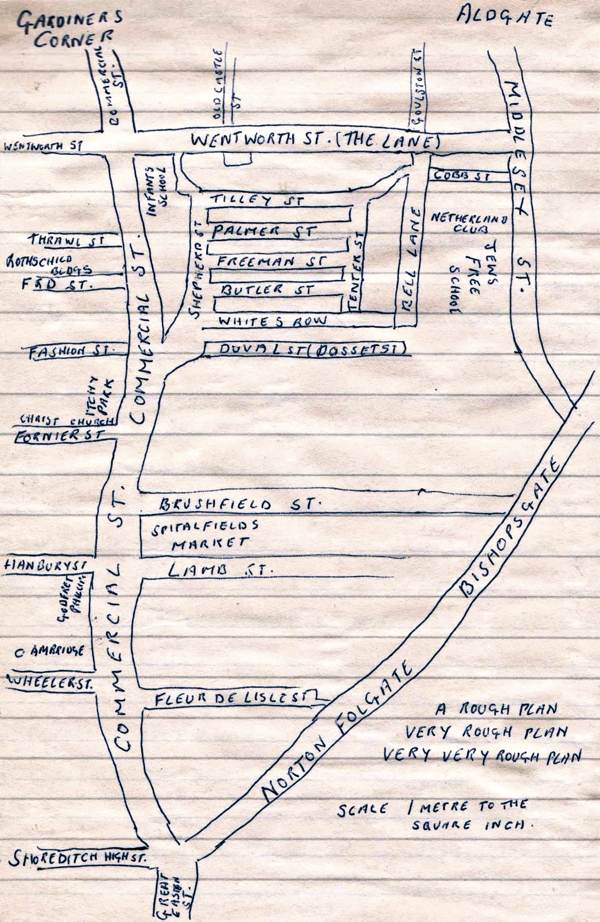 GARDINERS
CORNER
ALDGATE
COMMERCIAL
ST.
OLD CASTLE
ST
GOULSTON ST
MIDDLESEX ST.
WENTWORTH ST
WENTWORTH ST. (THE LANE)
INFANTS
SCHOOL
COBB ST
TILLEY ST
NETHERLAND
CLUB
PALMER ST
THRAWL ST
SHEPHERD ST
TENTER ST
BELL LANE
JEWS
FREE
SCHOOL
ROTHSCHILD
BLDGS
FREEMAN ST
F&D ST.
BUTLER ST
COMMERCIAL ST.
WHITES ROW
FASHION ST.
DUVAL ST (DOSSET ST)
ITCHY
PARK
CHRIST CHURCH
FORNIER ST
BRUSHFIELD ST.
SPITALFIELDS
MARKET
BISHOPSGATE
HANBURY ST
LAMB ST.
GODFREY
COMMERCIAL ST.
CAMBRIDGE
WHEELER ST.
FLEUR DE LISLE ST
NORTON FOLGATE
A ROUGH PLAN
VERY ROUGH PLAN
VERY VERY ROUGH PLAN
SCALE 1 METRE TO THE
SQUARE INCH.
SHOREDITCH HIGH ST.
GREAT
EASTERN
ST.